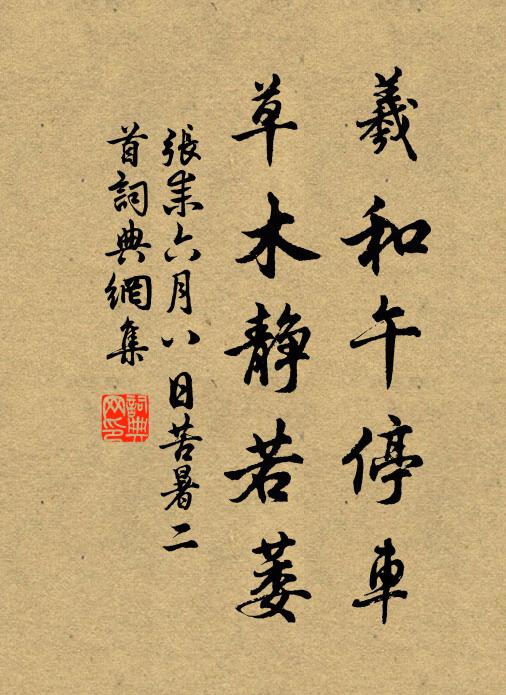 羲和午停車
草木靜若萎
張耒六月八日苦暑二
首詞典網集
詞典
网印